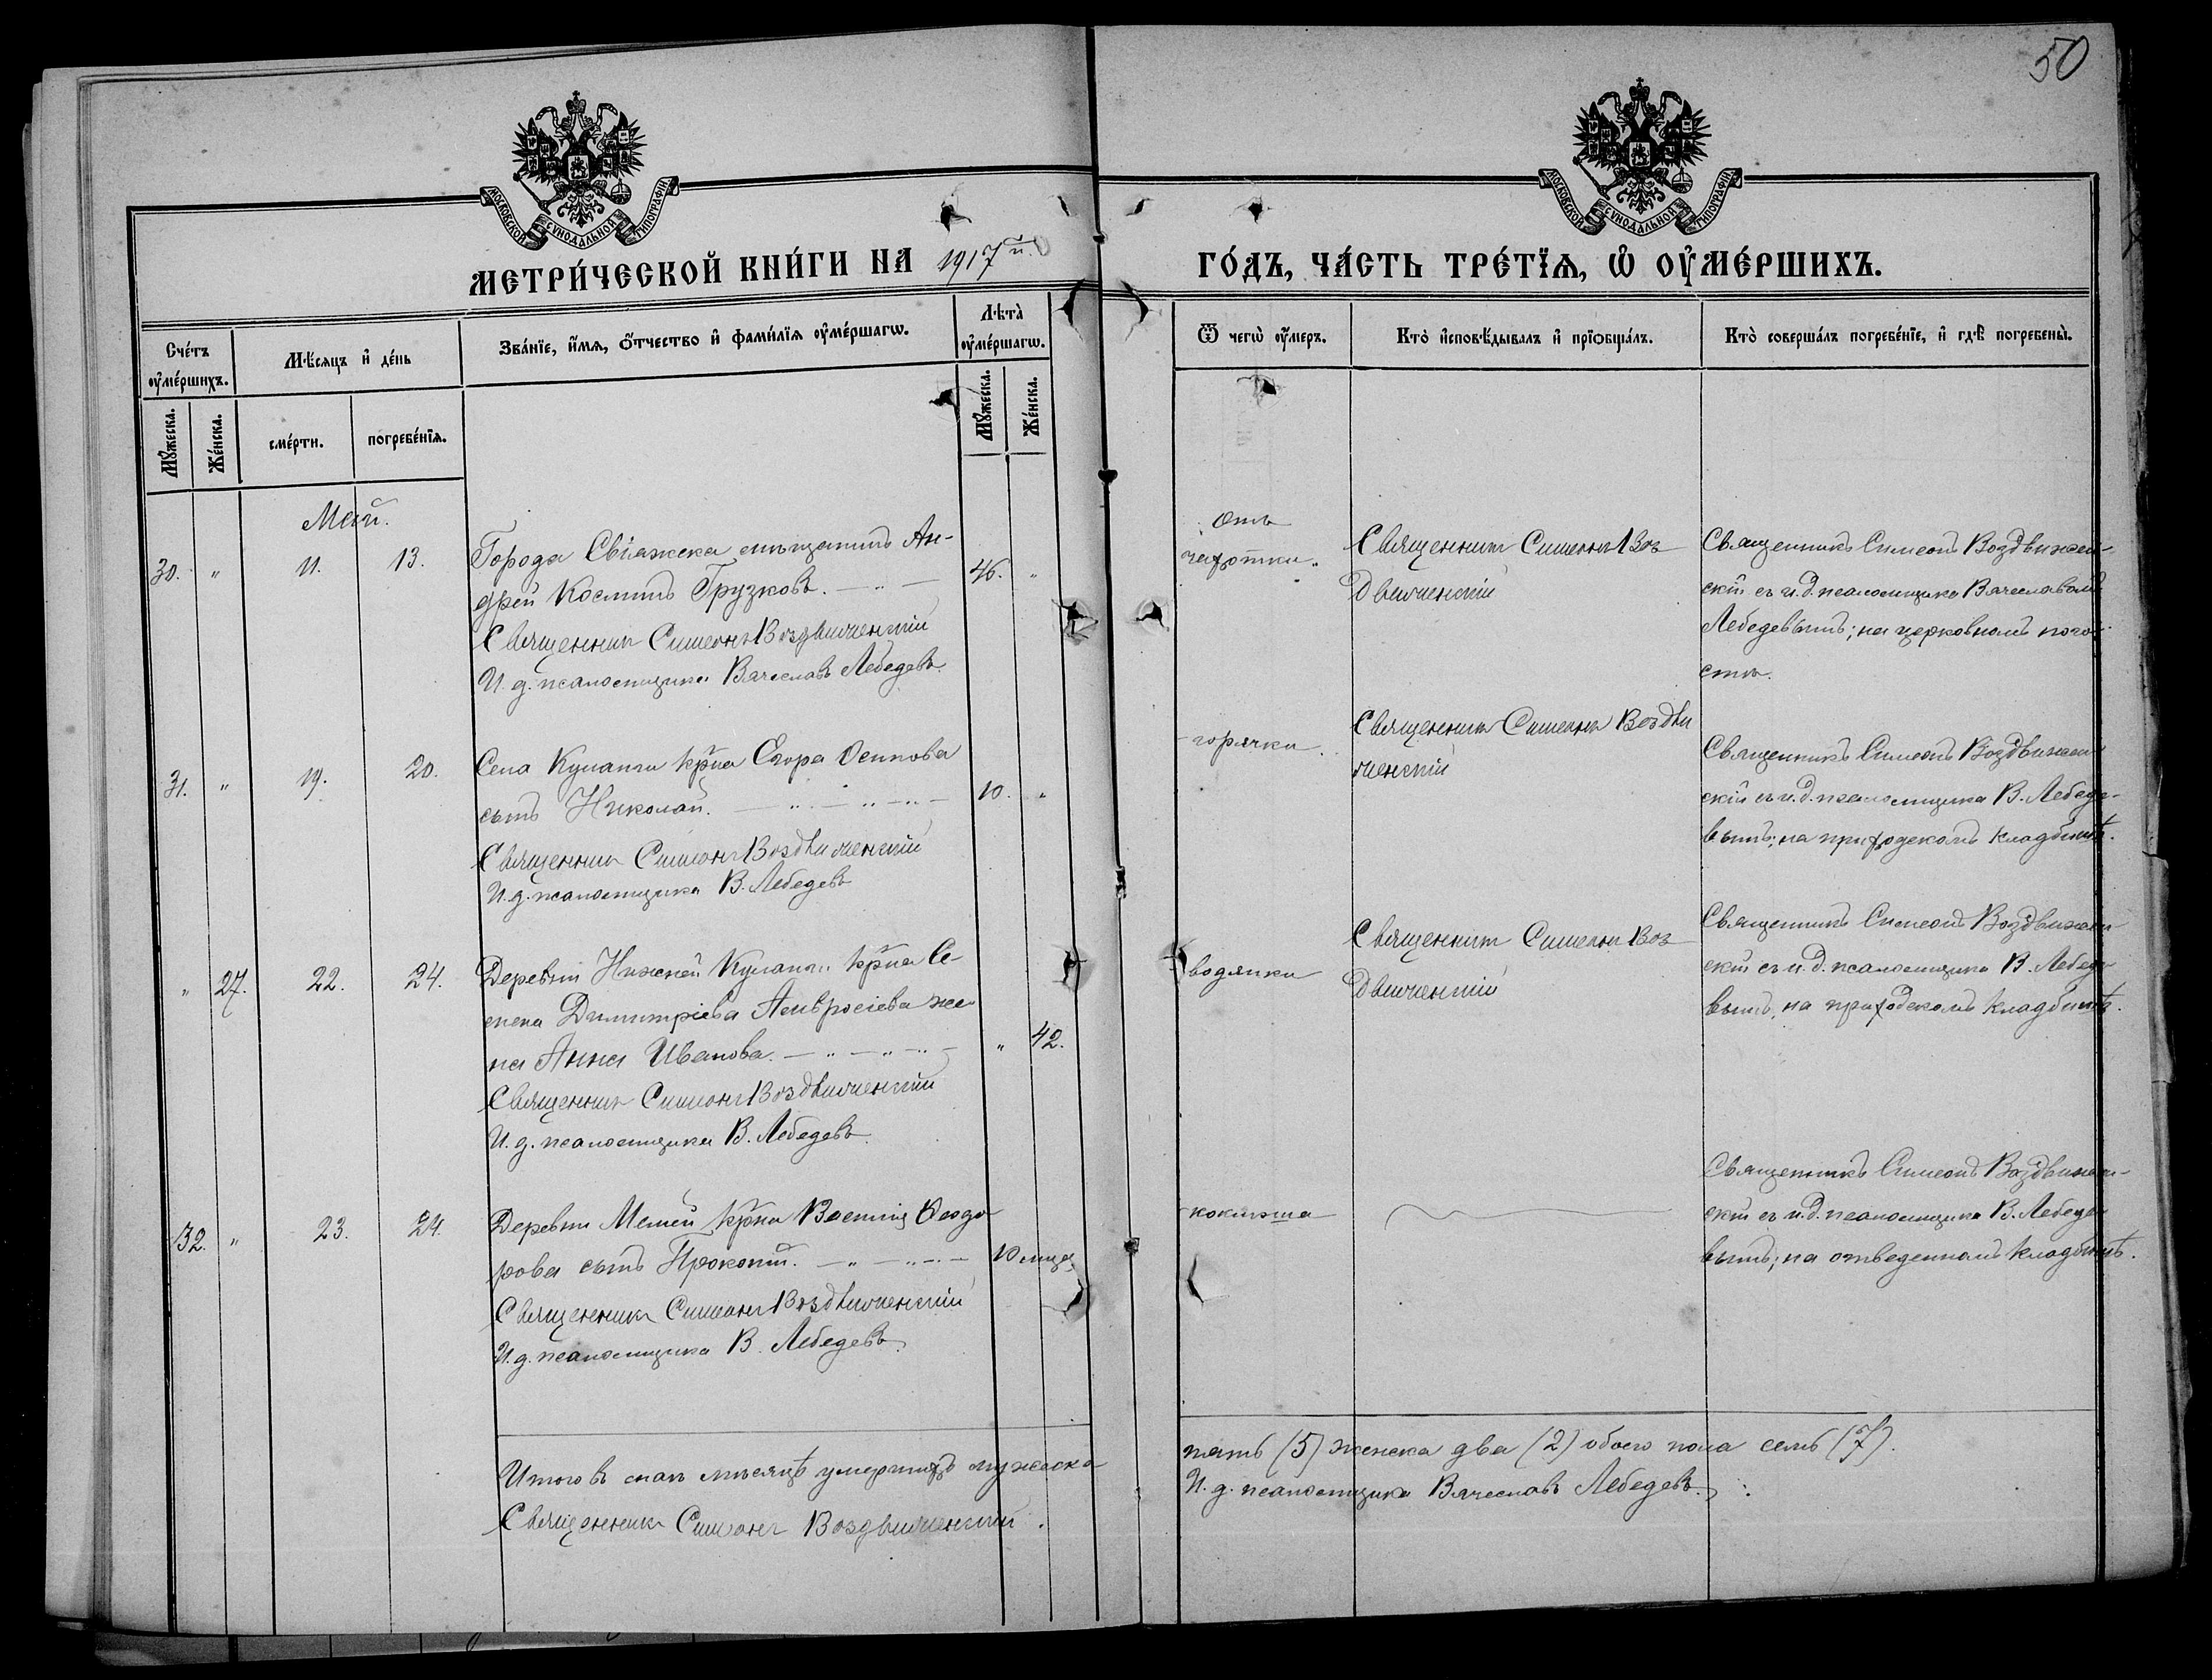 50
МОСКОВСКОЙ СѴНОДАЛЬНОЙ ТИПОГРАФІИ
МОСКОВСКОЙ СѴНОДАЛЬНОЙ ТИПОГРАФІИ
МЕТРИ́ЧЕСКОЙ КНИ́ГИ НА 1917й. ГО́ДЪ, ЧА́СТЬ ТРЕ́ТЇѦ, Ѡ҆ ОУ҆МЕ́РШИХЪ.
Сче́тъ оу҆ме́ршихъ.
Мѣ́сяцъ и҆ де́нь
Зва́нїе, и҆́мѧ, ѻ҆́тчество и҆ фами́лїѧ оу҆ме́ршагѡ.
Лѣта̀ оу҆ме́ршагѡ.
Ѿ чегѡ̀ оу҆́меръ.
Кто̀ и҆сповѣ́дывалъ и҆ прїѻбща́лъ.
Кто̀ соверша́лъ погребе́нїе, и҆ гдѣ̀ погребены̀.
Мꙋ́жеска.
Же́нска.
сме́рти.
погребе́нїѧ.
Мꙋ́жеска.
Же́нска.
Май.
30. " 11. 13.
Города Свіяжска мѣщанинъ Ан-
дрей Косминъ Грузковъ. — " —
46. "
Священникъ Симеонъ Воздвиженскій
И. д. псаломщика Вячеславъ Лебедевъ.
отъ
чахотки.
Священникъ Симеонъ Воз
движенскій
Священникъ Симеонъ Воздвижен-
скій съ и. д. псаломщика Вячеславомъ
Лебедевымъ; на церковномъ пого-
стѣ.
31. " 19. 20.
Села Куланги кр-на Егора Осипова
сынъ Николай. — " — " — " —
10. "
Священникъ Симеонъ Воздвиженскій
И. д. псаломщика В. Лебедевъ
горячки.
Священникъ Симеонъ Воздви
женскій
Священникъ Симеонъ Воздвижен-
скій съ и. д. псаломщика В. Лебеде-
вымъ; на приходскомъ кладбищѣ.
" 27. 22. 24.
Деревни Нижней Куланги кр-на Се-
мена Димитріева Амвросіева же-
на Анна Иванова. — " — " — " —
" 42.
Священникъ Симеонъ Воздвиженскій
И. д. псаломщика В. Лебедевъ.
водянки
Священникъ Симеонъ Воз
движенскій
Священникъ Симеонъ Воздвижен-
скій съ и. д. псаломщика В. Лебеде-
вымъ, на приходскомъ кладбищѣ.
32. " 23. 24.
Деревни Мемей кр-на Василія Ѳеодо
рова сынъ Прокопій. — " — " — " —
10 мцѣ.
Священникъ Симеонъ Воздвиженскій
И. д. псаломщика В. Лебедевъ.
коклюша
Священникъ Симеонъ Воздвижен-
скій съ и. д. псаломщика В. Лебеде-
вымъ; на отведенномъ кладбищѣ.
Итого въ маѣ мѣсяцѣ умершихъ мужеска
пять (5) женска два (2) обоего пола семь (7).
Священникъ Симеонъ Воздвиженскій.
И. д. псаломщика Вячеславъ Лебедевъ.